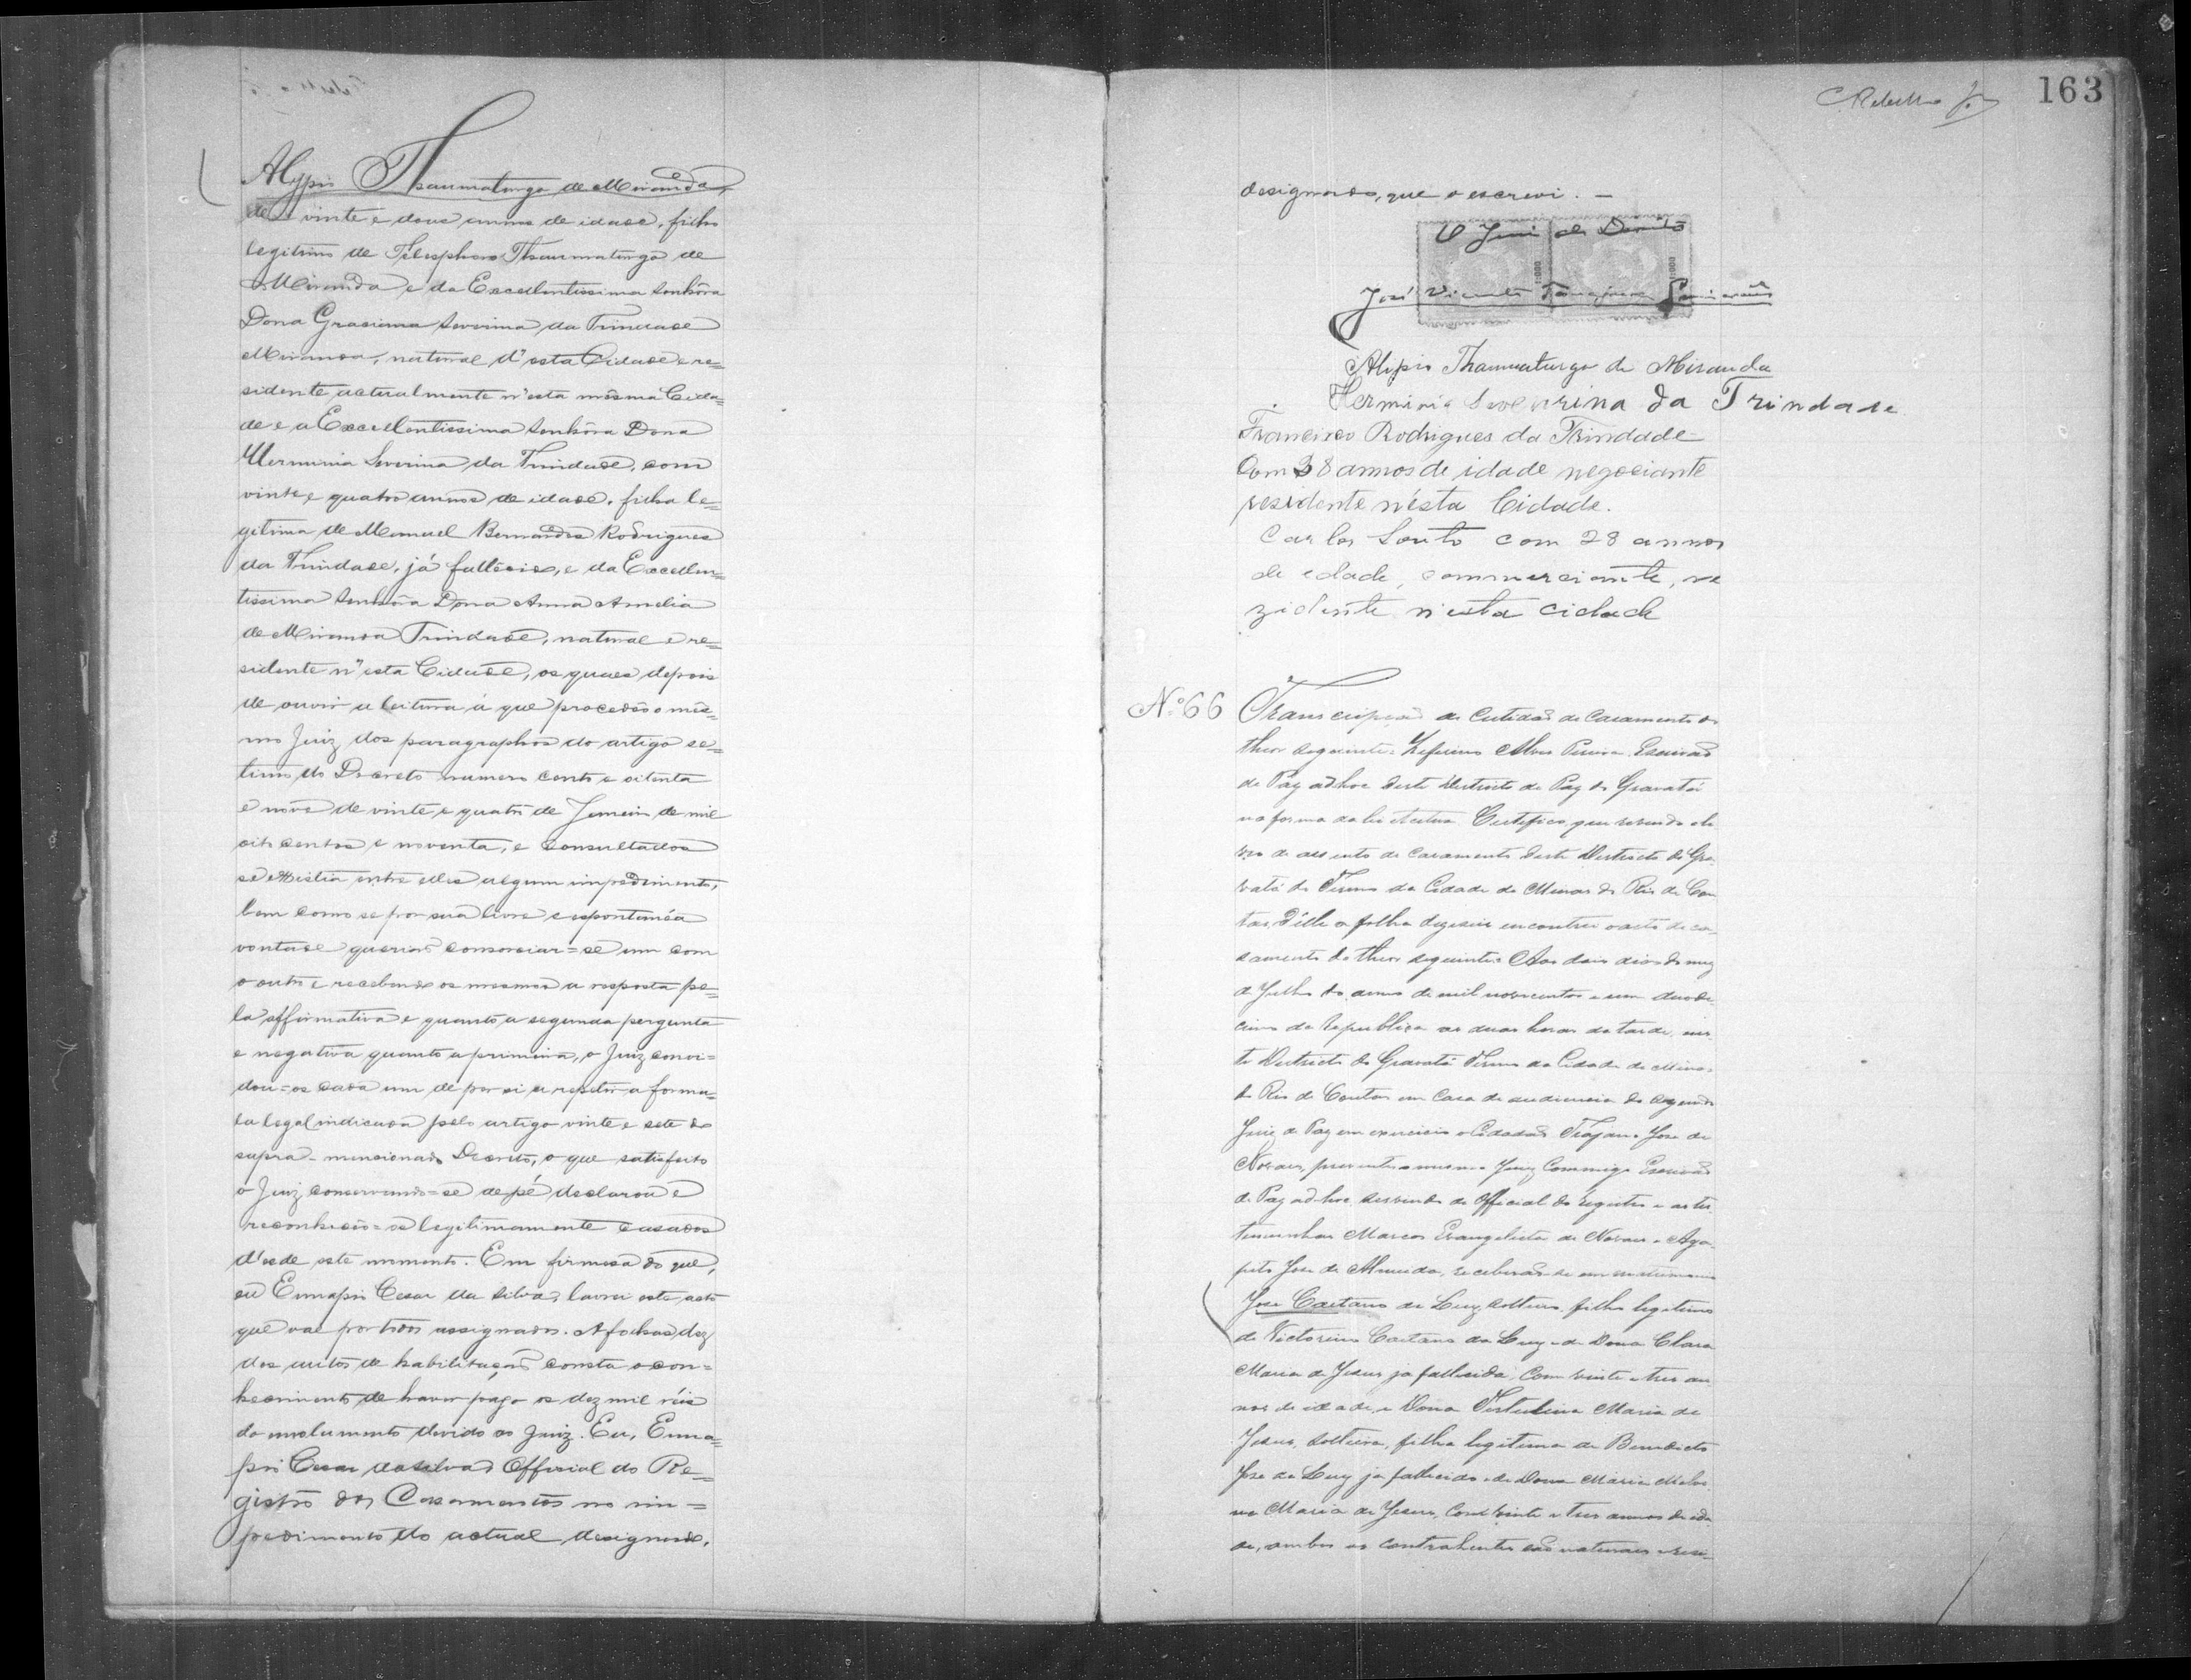 Alypio Thaumaturgo de Miranda,
de vinte e dous annos de idade, filho
legitimo de Telesphoro Thaumaturgo de
Miranda e da Excellentissima Senhôra
Dona Graciana Severina da Trindade
Miranda, natural d'esta Cidade e re=
sidente actualmente n'esta mesma Cida=
de e a Excellentissima Senhôra Dona
Herminia Severina da Trindade, com
vinte e quatro annos de idade, filha le=
gitima de Manuel Bernardes Rodrigues
da Trindade, já fallecido, e da Excellen=
tissima Senhôra Dona Anna Amelia
de Miranda Trindade, natural e re=
sidente n'esta Cidade, os quaes depois
de ouvir a leitura á que procedêo o mês=
mo Juiz dos paragraphos do artigo se=
timo do Decreto numero cento e oitenta
e nove de vinte e quatro de Janeiro de mil
oito centos e noventa, e consultados
se existia entre elles algum impedimento,
bem como se por sua livre e espontanéa
vontade queriaõ consorciar=se um com
o outro e recebendo os mesmos a resposta pe=
la affirmativa e quanto a segunda pergunta
e negativa quanto a primeira, o Juiz convi=
dou=os cada um de per si a repetir a formu=
la legal indicada pelo artigo vinte e sete do
supra-mencionado Decreto, o que satisfeito
o Juiz conservando=se de pé declarou e
reconhecêo=os legitimamente casados
d'esde este momento. Em firmesa do que,
eu Eunapio Cesar da Silva, lavrei este acto
que vae por todos assignados. A folhas dez
dos autos de habilitação consta o con=
hecimento de haver pago os dez mil réis
do emolumento devido ao Juiz. Eu, Euna=
pio Cesar da Silva Official do Re=
gistro dos Casamentos no im=
pedimento do actual designado,
163
designado, que o escrevi. —
O Juiz de Direito
José Vicente Guimarães
Alypio Thaumaturgo de Miranda
Herminia Severina da Trindade
Francisco Rodrigues da Trindade
Com 38 annos de idade negociante
residente nésta Cidade.
Carlos Souto com 28 annos
de edade, commerciante, re
zidente n'esta cidade
Nº 66 Transcripção da Certidaõ de Casamento do
theor seguinte: Zeferino Alves Pereira Escrivaõ
de Paz ad hoc deste Destricto de Paz do Gravatá
na forma da lei Certifico que revendo o li
vro de assento de Casamento deste Destricto do Gra
vatá do Termo da Cidade de Minas do Rio de Con
tas, d'elle a folha dezeseis encontrei o acto de ca
samento do theor seguinte: Aos dois dias do mez
de Julho do anno de mil novecentos e um duode
cimo da Republica as duas horas da tarde, nes
te Destricto do Gravatá Termo da Cidade de Minas
do Rio de Contas em Casa de audiencia do segundo
Juiz de Paz em exercicio o Cidadaõ Trajano Jose de
Novaes, presente o mesmo Juiz Commigo Escrivaõ
de Paz ad hoc servindo de Official do registro e as tes
temunhas Marcos Evangelista de Novaes e Aga
pito Jose de Almeida, receberaõ-se em matrimonio
Jose Caetano da Luz, solteiro, filho legitimo
de Victorino Caetano da Luz e de Dona Clara
Maria de Jesus ja fallecida, Com vinte e tres an
nos de idade, e Dona Maria de
Jesus, solteira, filha legitima de Benedicto
Jose da Luz ja fallecido e de Dona Maria
Maria de Jesus, Com vinte e tres annos de ida
de, ambos os contrahentes saõ naturaes e resi=